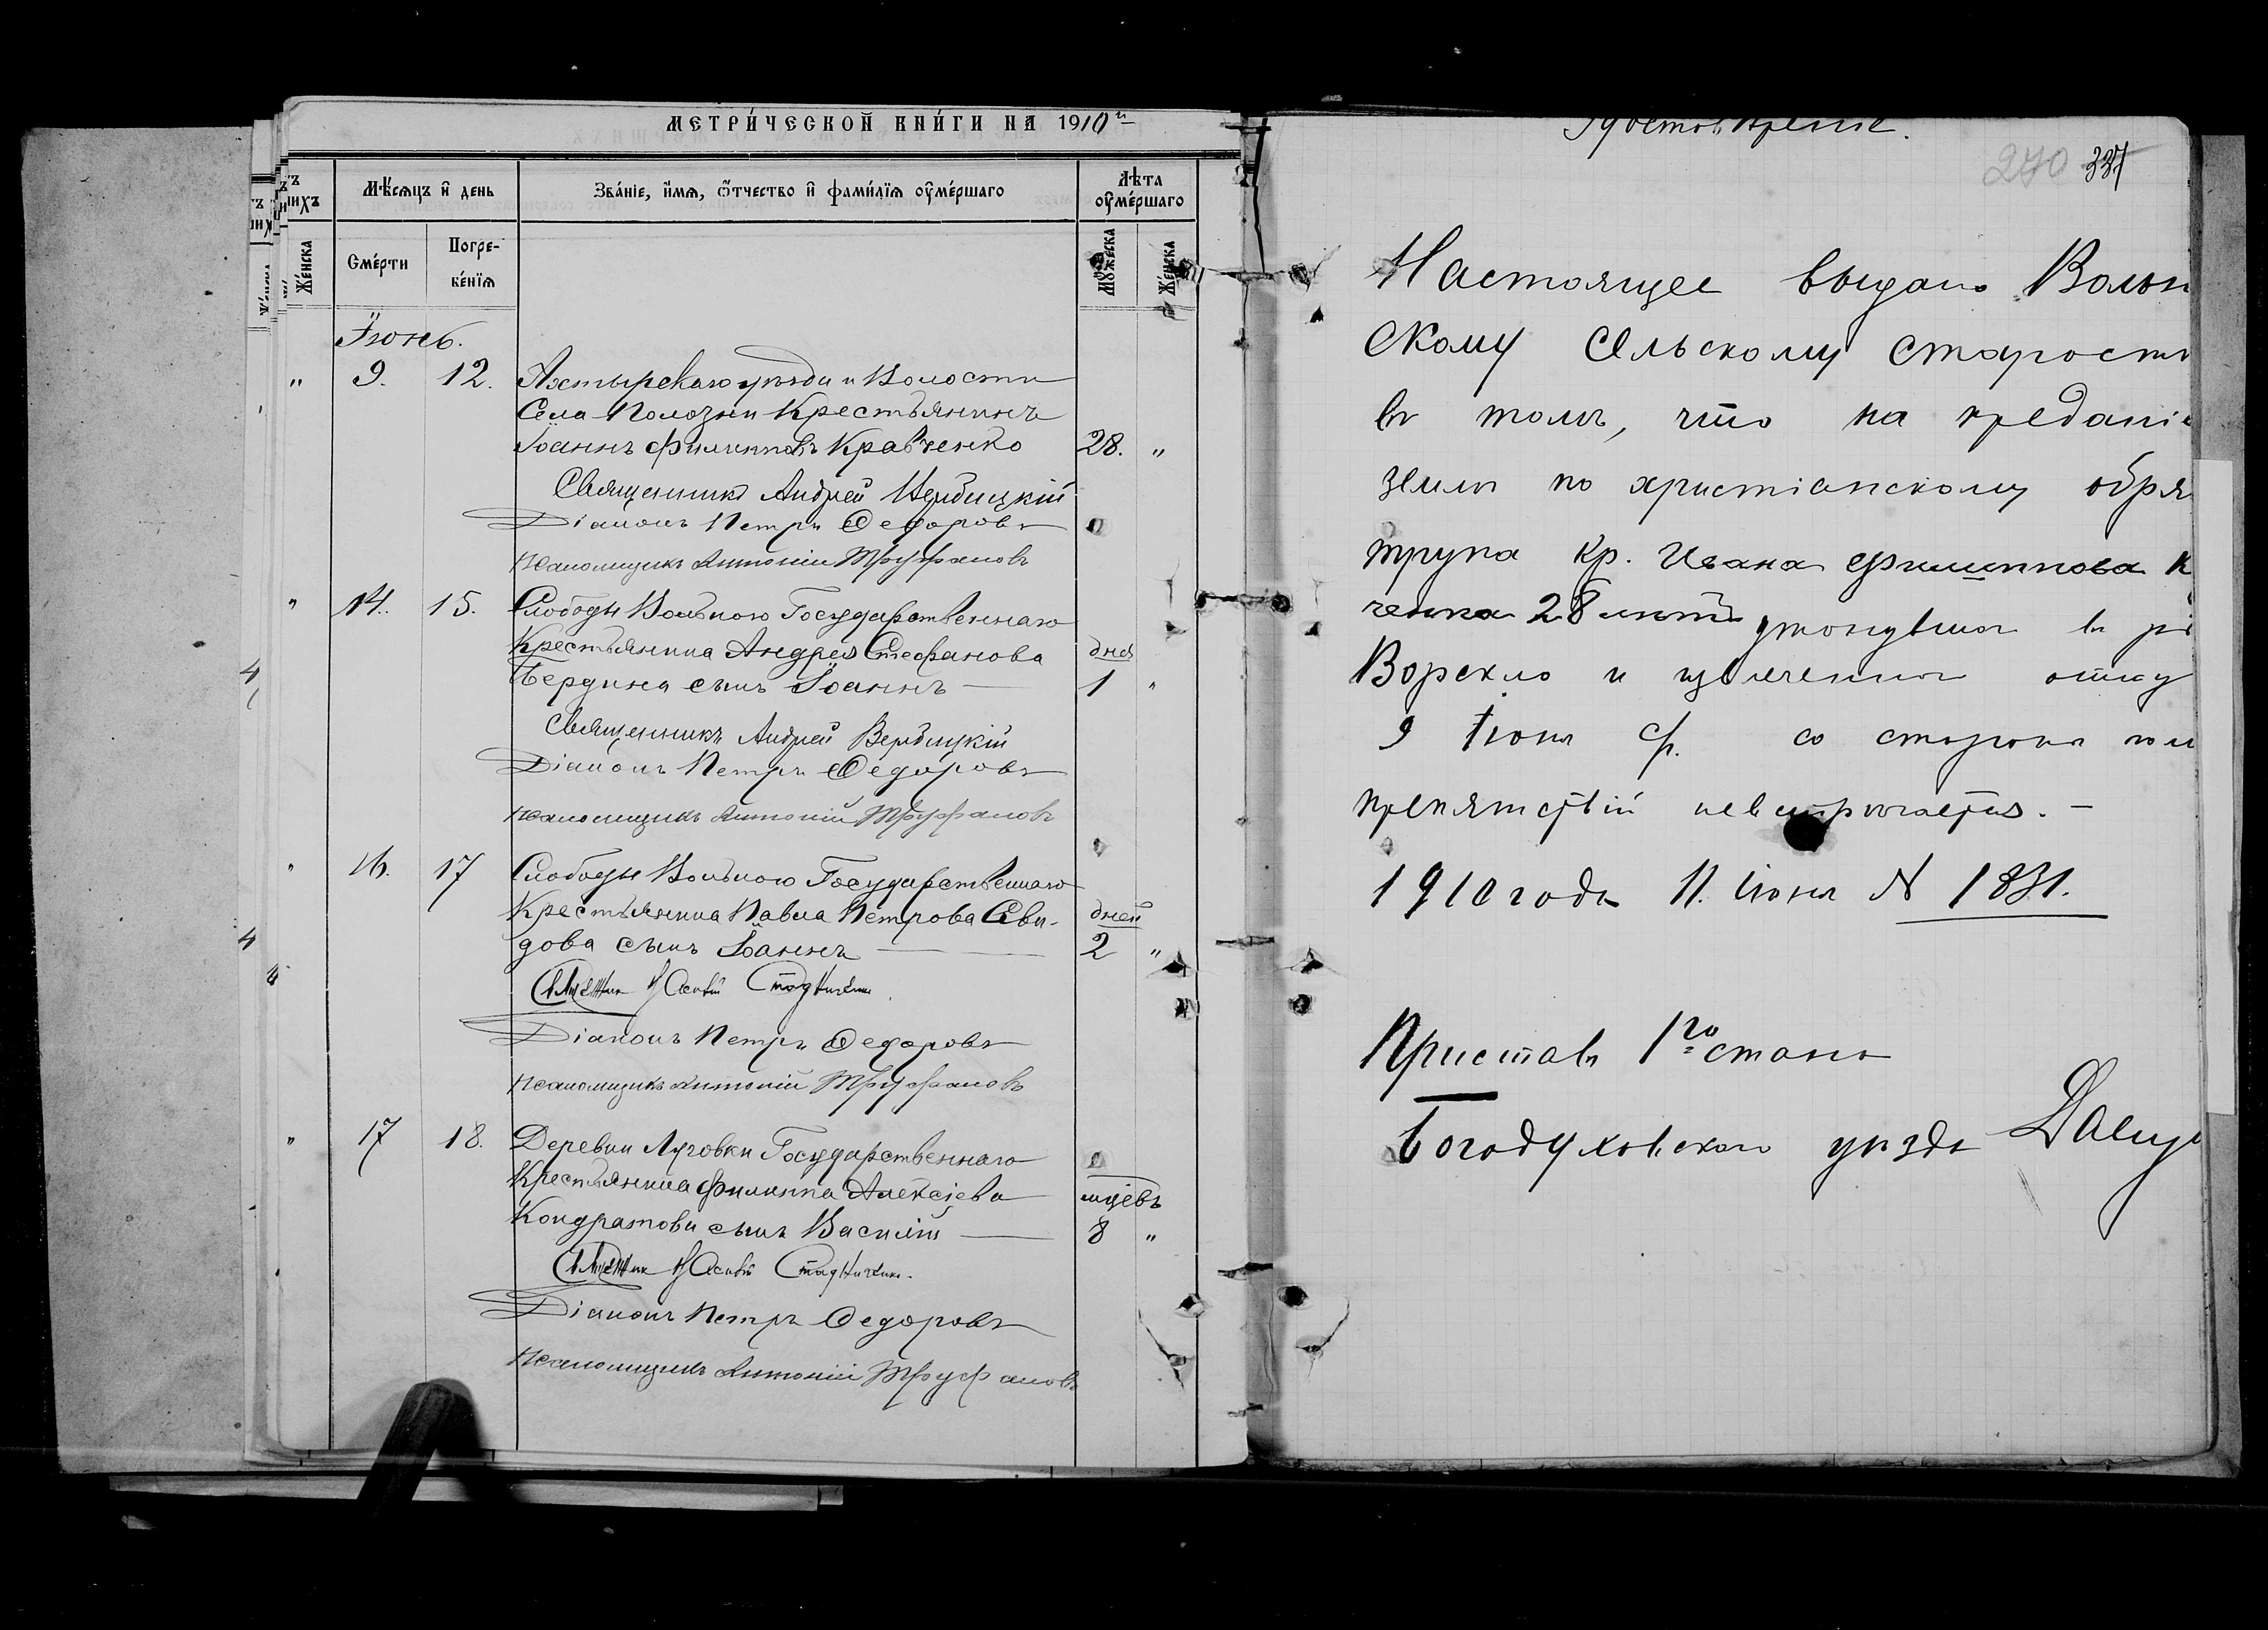 МЕТРИ́ЧЕСКОЙ КНИ́ГИ НА 1910й
Мѣ́сяцъ и҆ день
Зва́нїе, и҆́мя, ѻ҆́тчество и҆ фами́лїя ᲂу҆ме́ршаго
Лѣ́та ᲂу҆ме́ршаго
Же́нска
Сме́рти
Погре-
бе́нїя
Му́жеска
Же́нска
Іюнь.
" 9. 12. Ахтырскаго уѣзда и Волости
Села Полозки Крестьянинъ
Іоаннъ Филипповъ Кравченко 28. "
Священникъ Андрей Вербицкій
Діаконъ Петръ Ѳедоровъ
Псаломщикъ Антоній Труфановъ
" 14. 15. Слободы Вольного Государственнаго
Крестьянина Андрея Стефанова дня
Бердина сынъ Іоаннъ — 1 "
Священникъ Андрей Вербицкій
Діаконъ Петръ Ѳедоровъ
Псаломщикъ Антоній Труфановъ
" 16. 17 Слободы Вольного Государственнаго
Крестьянина Павла Петрова Сви- дней
дова сынъ Іоаннъ — 2 "
Священник
Діаконъ Петръ Ѳедоровъ
Псаломщикъ Антоній Труфановъ
" 17 18. Деревни Луговки Государственнаго
Крестьянина Филиппа Алексіева мцевъ
Кондратова сынъ Василій — 8 "
Священник
Діаконъ Петръ Ѳедоровъ
Псаломщикъ Антоній Труфановъ
Удостовѣреніе.
270 337
Настоящее выдано Вольн
скому Сельскому старостѣ
въ томъ, что на преданіе
землѣ по христіанскому обря
трупа кр. Ивана Филиппова К
ченка 28 лѣтъ утонувшаго въ рѣ
Ворскло и извлеченнаго оттуд
9 Іюня с/г. со стороны пол
препятствій невстрѣчается. —
1910 года 11. Іюня № 1831.
Приставъ 1го стана
Богодуховскаго уѣзда